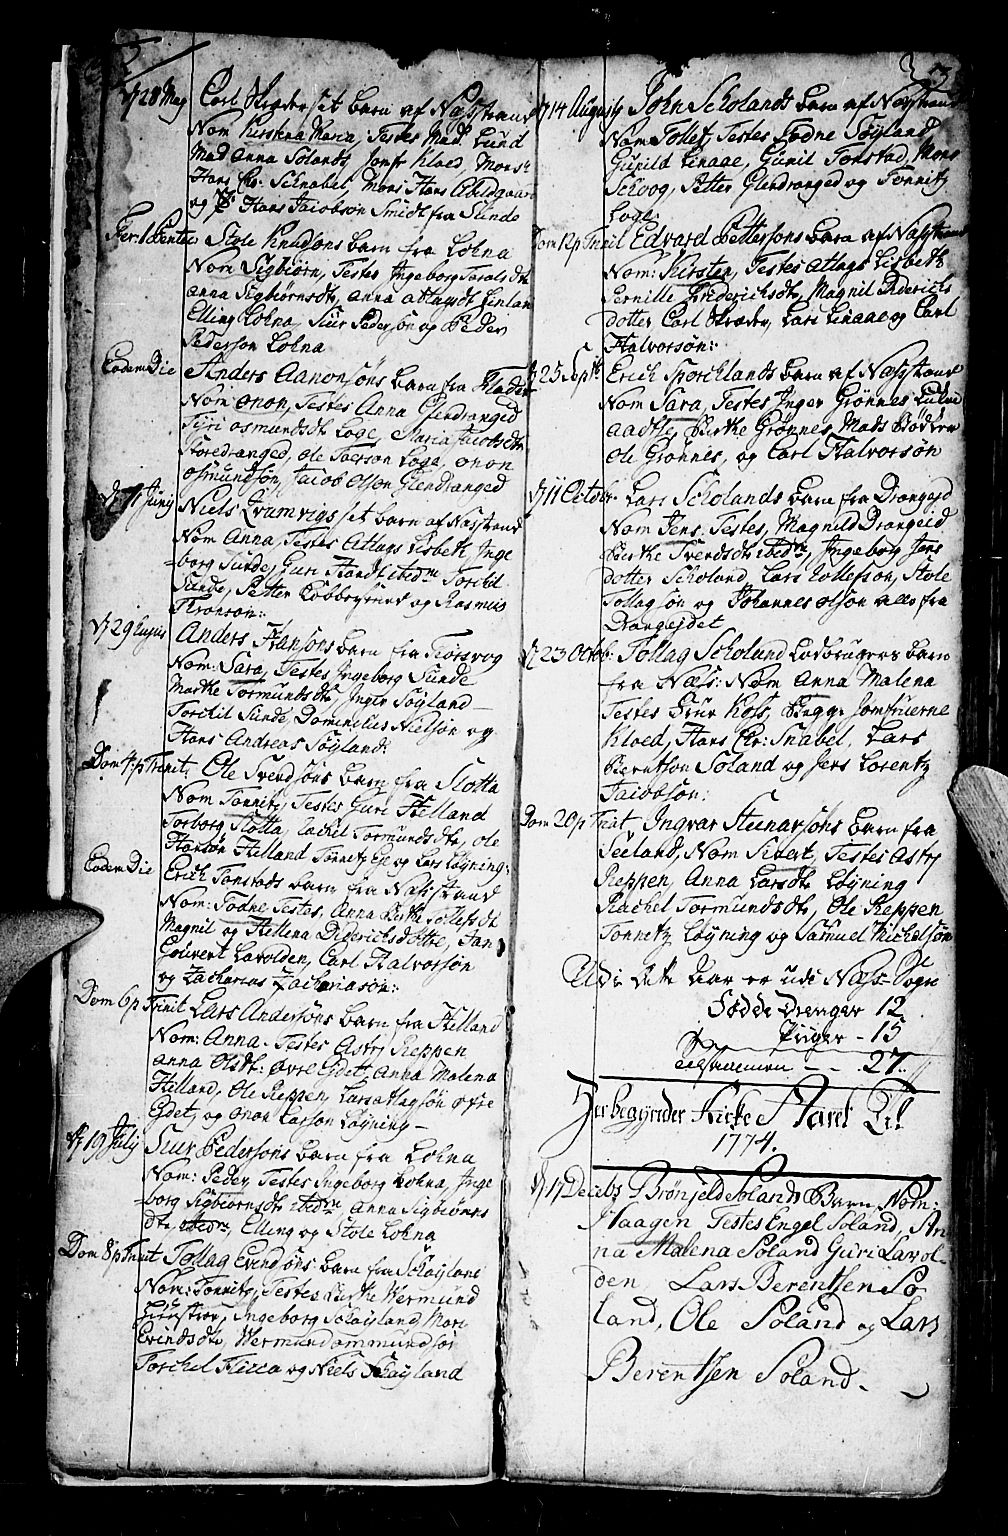 2
d 28 May Carl Skræder sit barn af Næsstrand
Nom Kirstina Maria, Testes Mad. Lund
Mad Anna Solands, Jomf Kloed, Mons
Hans Chr: Schnabel, Mons Hans Abildgaar
og Hans Jacobsøn Smidt fra Sunde
Fer: 1 Pentec Stole Knudsøns barn fra Lohna
Nom Sigbiørn, Testes Ingeborg Taralsdt
Anna Sigbiørnsdt, Anna Atlagsdt Linlan
Elling Lohna, Siur Pedersøn og Peder
Pedersøn Lohna
Eodem Die Anders Aanonsøns barn fra
Nom Onon, Testes Anna Glendranged
Tyri Osmundsdt Loge, Maria Jacobsdt
Storedranged, Ole Loge, Onon
Osmundsøn, Jacob Olsøn Glendranged
d 11 Juny Niels Qvamvigs sit barn af Næsstrand
Nom Anna, Testes Atlags Lisbeth Inge
borg Sunde, Guri ibidm Torchil
Sunde, Petter og Rasmus
Thronsøn:
d 29 Anders Hansøns barn fra Fiørsvog
Nom: Sara, Testes Ingeborg Sunde
Marthe Tormundsdt, Inger Søyland
Torchil Sunde, Dominelius Nielsøn og
Hans Andreas Søyland:
Dom 4 p Trinit: Ole Svendsøns barn fra Slotta
Nom Tønnitz, Testes Guri Helland
Torborg Slotta, Rachil Tormundsdt, Ole
Hansøn Helland Tønnitz og Lars Løyning:
Eodem Die Erich Tonstads barn fra Næsstrand
Nom: Todne Testes, Anna Birthe Tollefsdt
Magnil og Hellena Diderichsdotter, Jan
Gouvert Lavolden, Carl Halvorsøn
og Zacharias Zachariasøn:
Dom 6 p Trinit Lars Andersøns barn fra Helland
Nom: Anna. Testes Astry Reppen
Anna Olsdt: øvre Eydet, Anna Malena
Helland, Ole Reppen, Lars Atlagsøn øvre
Eydet, og Onon Lassøn Løyning
d 19 July Siur Pedersøns barn fra Lohna
Nom: Peder, Testes Ingeborg Lohna, Inge
borg Sigbiørnsdt ibidm, Anna Sigbiørns
dt, ibidm, Elling og Stole Lohna
Dom 8 p Trinit Tollag Evindsøns barn fra Schøyland
Nom: Tønnitz, Testes Birthe Wermund
Hustroe, Ingeborg Schøyland, Mari
Evindsdt, Wermund Ommundsøn
Torchel og Niels Schøyland
3
d 14 Augusty John Scholands barn af Næsstrand
Nom Tollef, Testes Todne Søyland
Gunild Linaae, Gunil Tonstad, Mons
Schoog, Petter Glendranged og Tønnitz
Loge
Dom 12 p Trinit Edvard Pettersøns barn af Næsstrand
Nom: Kirsten, Testes Atlags Lisbeth
Pernille Friderichsdt, Magnil Diderichs
dotter Carl Skræder, Lars Linaae og Carl
Halvorsøn:
d 25 Sept: Erich Sporchlands barn af Næsstrand
Nom Sara, Testes Inger Grønnes
Aadtte, Birthe Grønnes, Mads Bødker
Ole Grønnes, og Carl Halvorsøn
d 11 October Lars Scholands barn fra Drangeid
Nom Jens, Testes, Magnild Drangeid
Birthe Tverdsdt ibidm, Ingeborg Jens
dotter Scholand, Lars Tollefsøn, Stole
Tollagsøn og Johannes Olsøn alle fra
Drangejdet
d 23 Octob: Tollag Scholand Lodbrugers barn
fra Næs: Nom Anna Malena
Testes Frue Kofs, Begge Jomfruerne
Kloed, Hans Chr: Snabel, Lars
Berntsøn Soland og Jens Lorentz
Jacobsøn:
Dom 20 p Trinit, Ingvar Steinarsøns barn fra
Seeland, Nom Sivert, Testes Astry
Reppen, Anna Larsdt Løyning
Rachel Tormundsdt, Ole Reppen
Tønnetz Løyning og Samuel Michelsøn
Udi dette Aar er udi Næss Sogn
Fødde Drenger 12
Piiger - 15
tilsammen - - 27.
Her begynder Kirke Aaret Til
1774.
d 17 Decebr Brønjeld Solands Barn, Nom:
Haagen Testes Engel Soland, An
na Malena Soland Guri Lavol-
den, Lars Berentsen So
land, Ole Soland og Lars
Berentsen Soland.